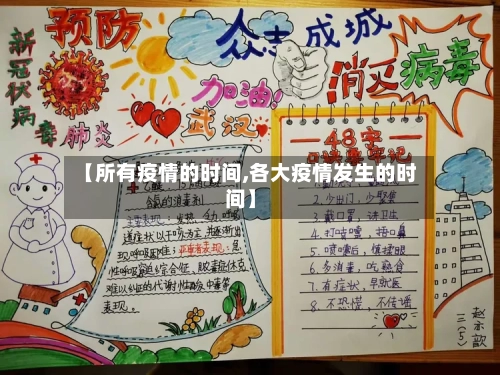 预防
众志成城
消灭病毒
新冠状病毒肺炎
加油!
武汉
48字
【所有疫情的时间,各大疫情发生的时
间】
含氯的消毒剂
主要表现:发热、乏力、呼吸
道症状以干咳为主,并逐渐出
现呼吸困难;严重者表现:急
性呼吸窘迫综合征、脓毒症休克、
难以纠正的代谢性酸中毒等
表现。
2.少出门,少聚集
3.戴口罩,讲卫生
4.打喷嚏,捂口鼻
5.喷嚏后,慎揉眼
6.多消毒,吃熟食
7.有症状,早就医
8.不恐慌,不传谣
三(5)